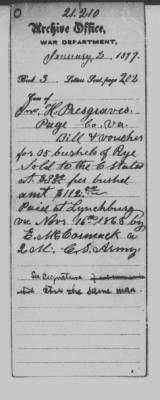 21.210
Archive Office,
WAR DEPARTMENT,
January 2, 1879.
Book 3 Letters Sent, page 202
Jno. H. Presgraves.
Page Co. Va.
Bill & voucher
for 35 bushels of Rye
Sold to the C States
at per bushel
amt $112.
Paid at Lynchburg
Va Nov. 16th 1863 by
E. McCormack a
2.M. C.S. Army
See signature
the same man.